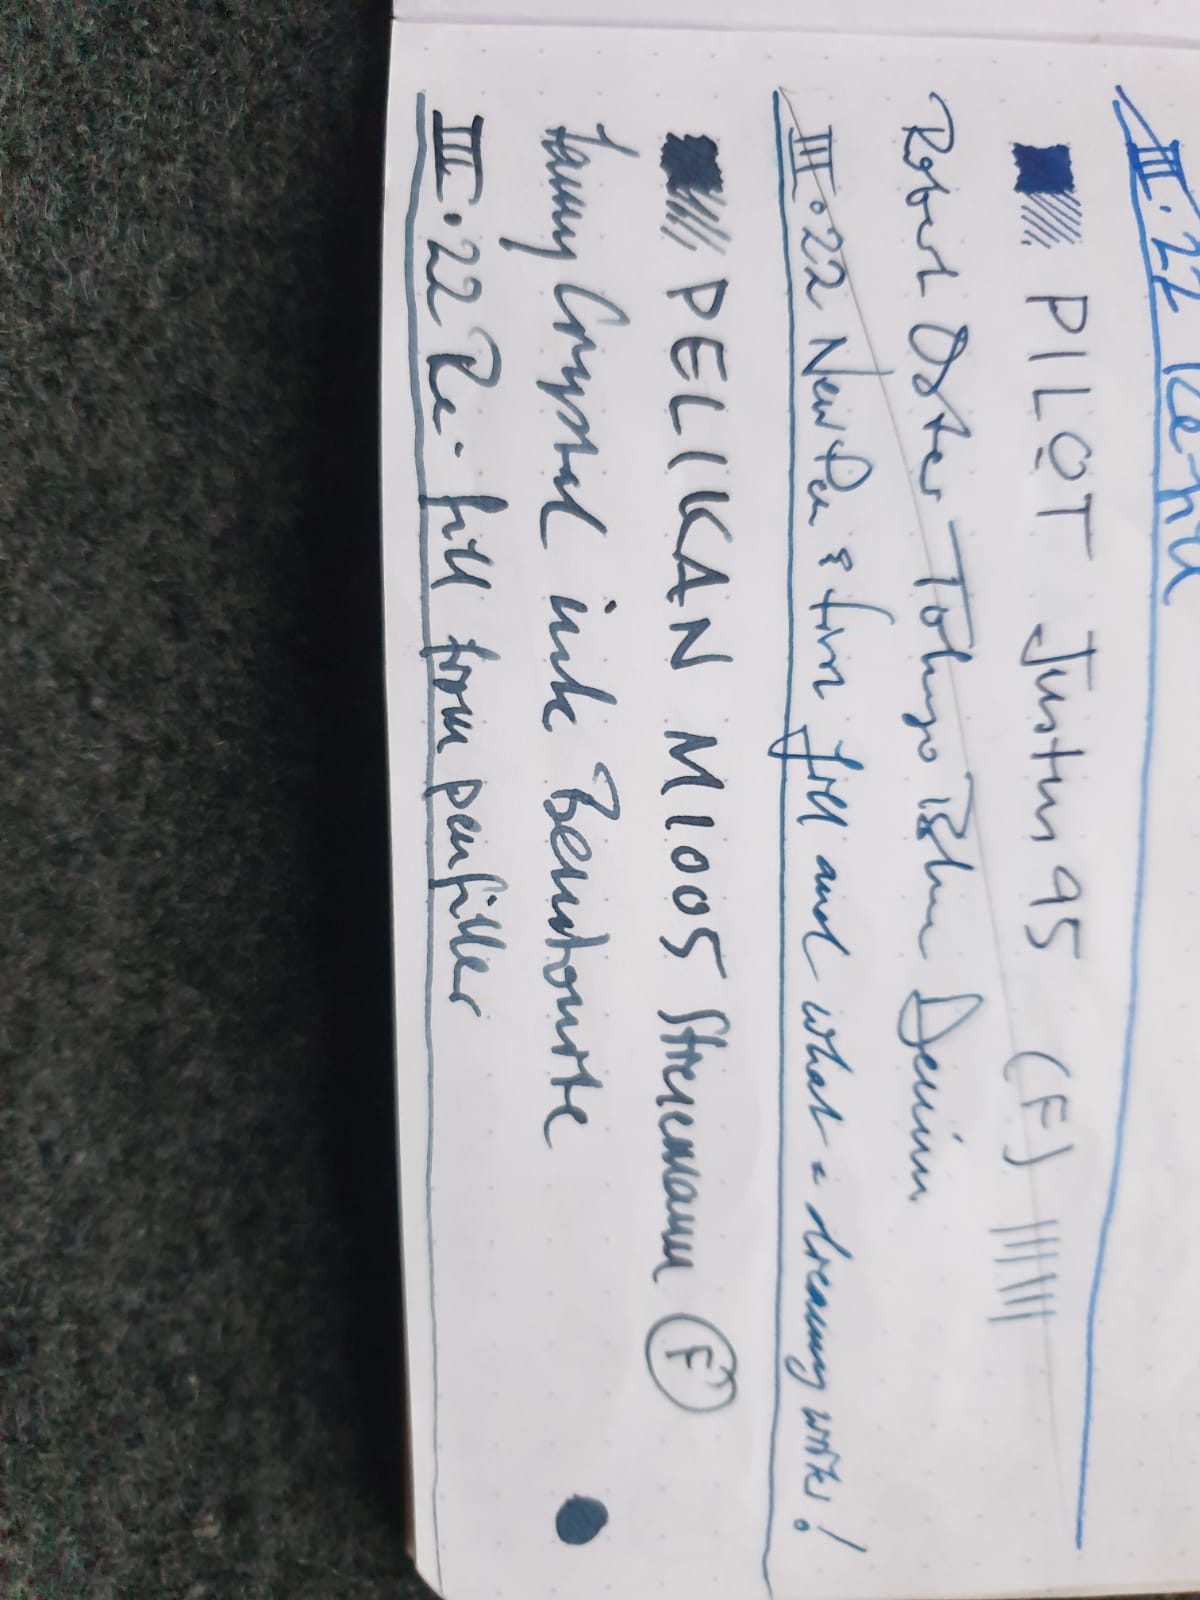 III.22 Re-fill
PILOT Justus 95 (F)
Robert Oster Tokyo Blue Denim
III.22 New Pen & first fill and what a dreamy writer!
PELIKAN M1005 Stresemann F
Lamy Crystal ink Benitoite
III.22 Re-fill from penfiller